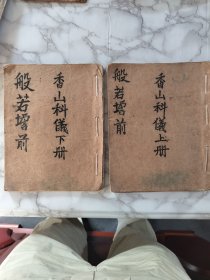 般若增前
香山科儀下册
般若增前
香山科儀上册